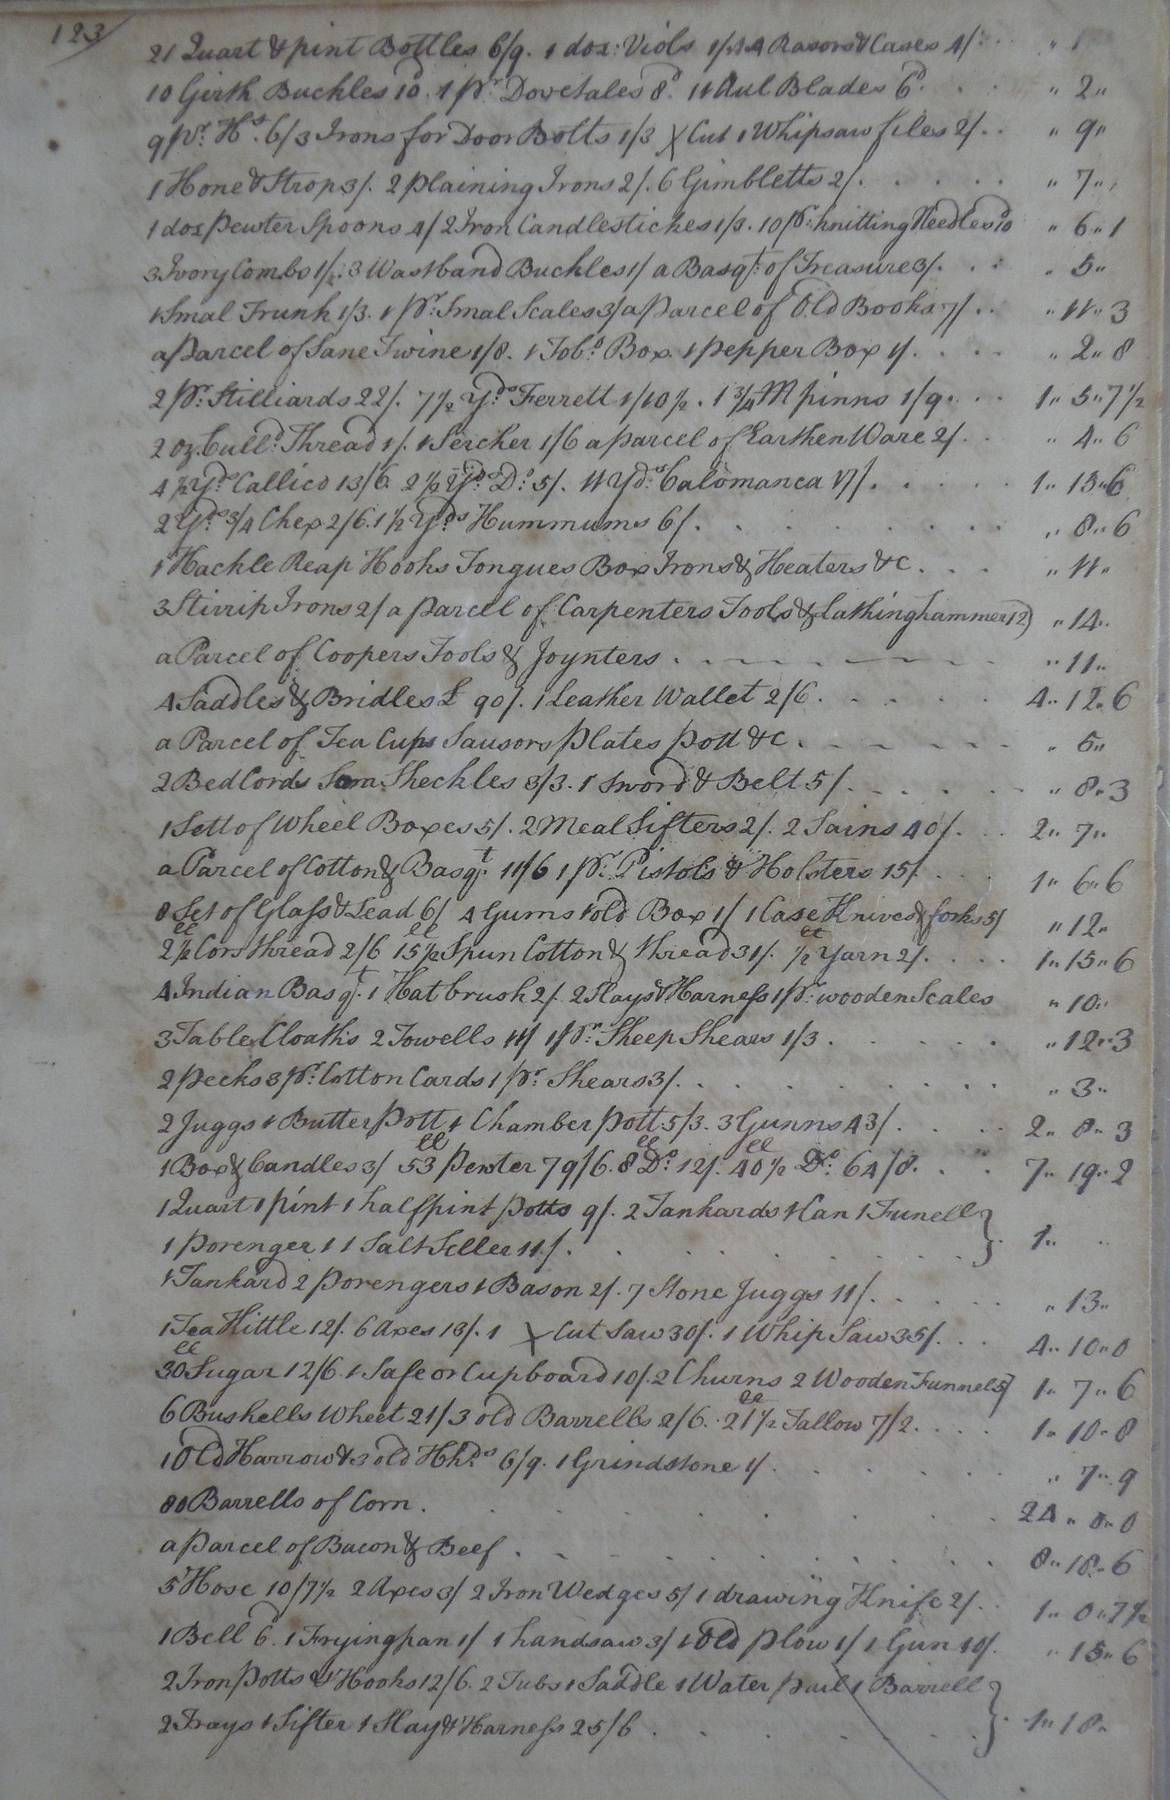 123
21 Quart & pint Bottles 6/9. 1 doz: Viols 1/. 4 Rasors & Cases 4/ " 1
10 Girth Buckles 10d. 1 pr. Dovetales 8d. 11 Aul Blades 6d. " 2"
9 pr. Hs. 6/3 Irons for Door Bolts 1/3 X Cut 1 Whipsaw files 2/. " 9"
1 Hone & Strop 3/. 2 plaining Irons 2/. 6 Gimbletts 2/. " 7"
1 doz pewter Spoons 4/ 2 Iron Candlestickes 1/3. 10 pr. knitting Needles 10 " 6" 1
3 Ivory Combs 1/. 3 Wastband Buckles 1/ a Basqt. of Treasure 3/. " 5"
1 Smal Trunk 1/3. 1 pr. Smal Scales 3/ a parcel of Old Books 7/. " 11" 3
a parcel of Sane Twine 1/8. 1 Tobo. Box. 1 pepper Box 1/. " 2" 8
2 pr. Stilliards 22/. 7½ Yds Ferrett 1/10½. 1¾ M pinns 1/9. 1" 5" 7½
2 oz. Culld. Thread 1/. 1 Sercher 1/6 a parcel of Earthen Ware 2/. " 4" 6
4½ Yds Callico 13/6. 2½ Yds Do. 5/. 11 Yds. Calomanca 17/. 1" 15" 6
2 Yds 3/4 Chex 2/6. 1½ Yds Hummums 6/. " 8" 6
1 Hackle Reap Hooks Tongues Box Irons & Heaters &c. " 11"
3 Stirrip Irons 2/ a parcel of Carpenters Tools & Lathinghammer 12) " 14"
a Parcel of Coopers Tools & Joynters. " 11"
4 Saddles & Bridles £ 90/. 1 Leather Wallet 2/6. 4" 12" 6
a Parcel of Tea Cups Sausors plates pott &c. " 5"
2 Bed Cords Sheckles 3/3. 1 Sword & Belt 5/. " 8" 3
1 Sett of Wheel Boxes 5/. 2 Meal Sifters 2/. 2 Sains 40/. 2" 7"
a Parcel of Cotton & Basqt. 11/6 1 pr. Pistols & Holsters 15/. 1" 6" 6
8 Set of Glass & Lead 6/ 4 Gums 1 old Box 1/ 1 Case Knives & forks 5/ " 12"
2½ll Cors thread 2/6 15½ll Spun Cotton & thread 31/. ½ll Yarn 2/. 1" 15" 6
4 Indian Basqt. 1 Hatbrush 2/. 2 Slays & Harness 1 pr. wooden Scales " 10"
3 Table Cloaths 2 Towells 11/ 1 pr. Sheep Shears 1/3. " 12" 3
2 pecks 3 pr. Cotton Cards 1 pr. Shears 3/. " 3"
2 Juggs 1 Butter pott 1 Chamber pott 5/3. 3 Gunns 43/. 2" 8" 3
1 Box & Candles 3/ 53ll pewter 79/6. 8ll Do. 12/. 40½ll Do. 64/8. 7" 19" 2
1 Quart 1 pint 1 halfpint potts 9/. 2 Tankards 1 Can 1 Funell }
1 porenger 1 1 Salt Seller 11/. 1"
1 Tankard 2 porengers 1 Bason 2/. 7 Stone Juggs 11/. " 13"
1 Tea Kittle 12/. 6 Axes 13/. 1 X Cut Saw 30/. 1 Whip Saw 35/. 4" 10" 0
30ll Sugar 12/6. 1 Safe or Cupboard 10/. 2 Churns 2 Wooden Funnel 5/ 1" 7" 6
6 Bushells Wheet 21/ 3 old Barrells 2/6. 21½ll Tallow 7/2. 1" 10" 8
1 Old Harrow & 3 old Hhds 6/9. 1 Grindstone 1/. " 7" 9
80 Barrells of Corn. 24" 0" 0
a parcel of Bacon & Beef. 8" 18" 6
5 Hose 10/7½ 2 Axes 3/ 2 Iron Wedges 5/ 1 drawing Knife 2/. 1" 0" 7½
1 Bell 6d. 1 Fryingpan 1/ 1 handsaw 3/ 1 Old plow 1/ 1 Gun 10/. " 15" 6
2 Iron potts & Hooks 12/6. 2 Tubs 1 Saddle 1 Water pail 1 Barrell }
2 Trays 1 Sifter 1 Slay & Harness 25/6. 1" 18"